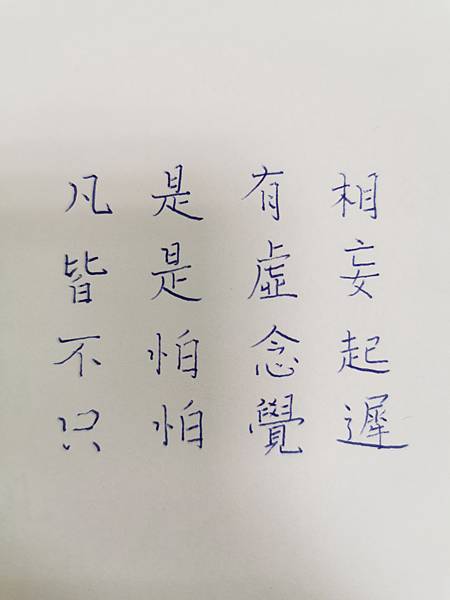 凡是有相
皆是虛妄
不怕念起
只怕覺遲